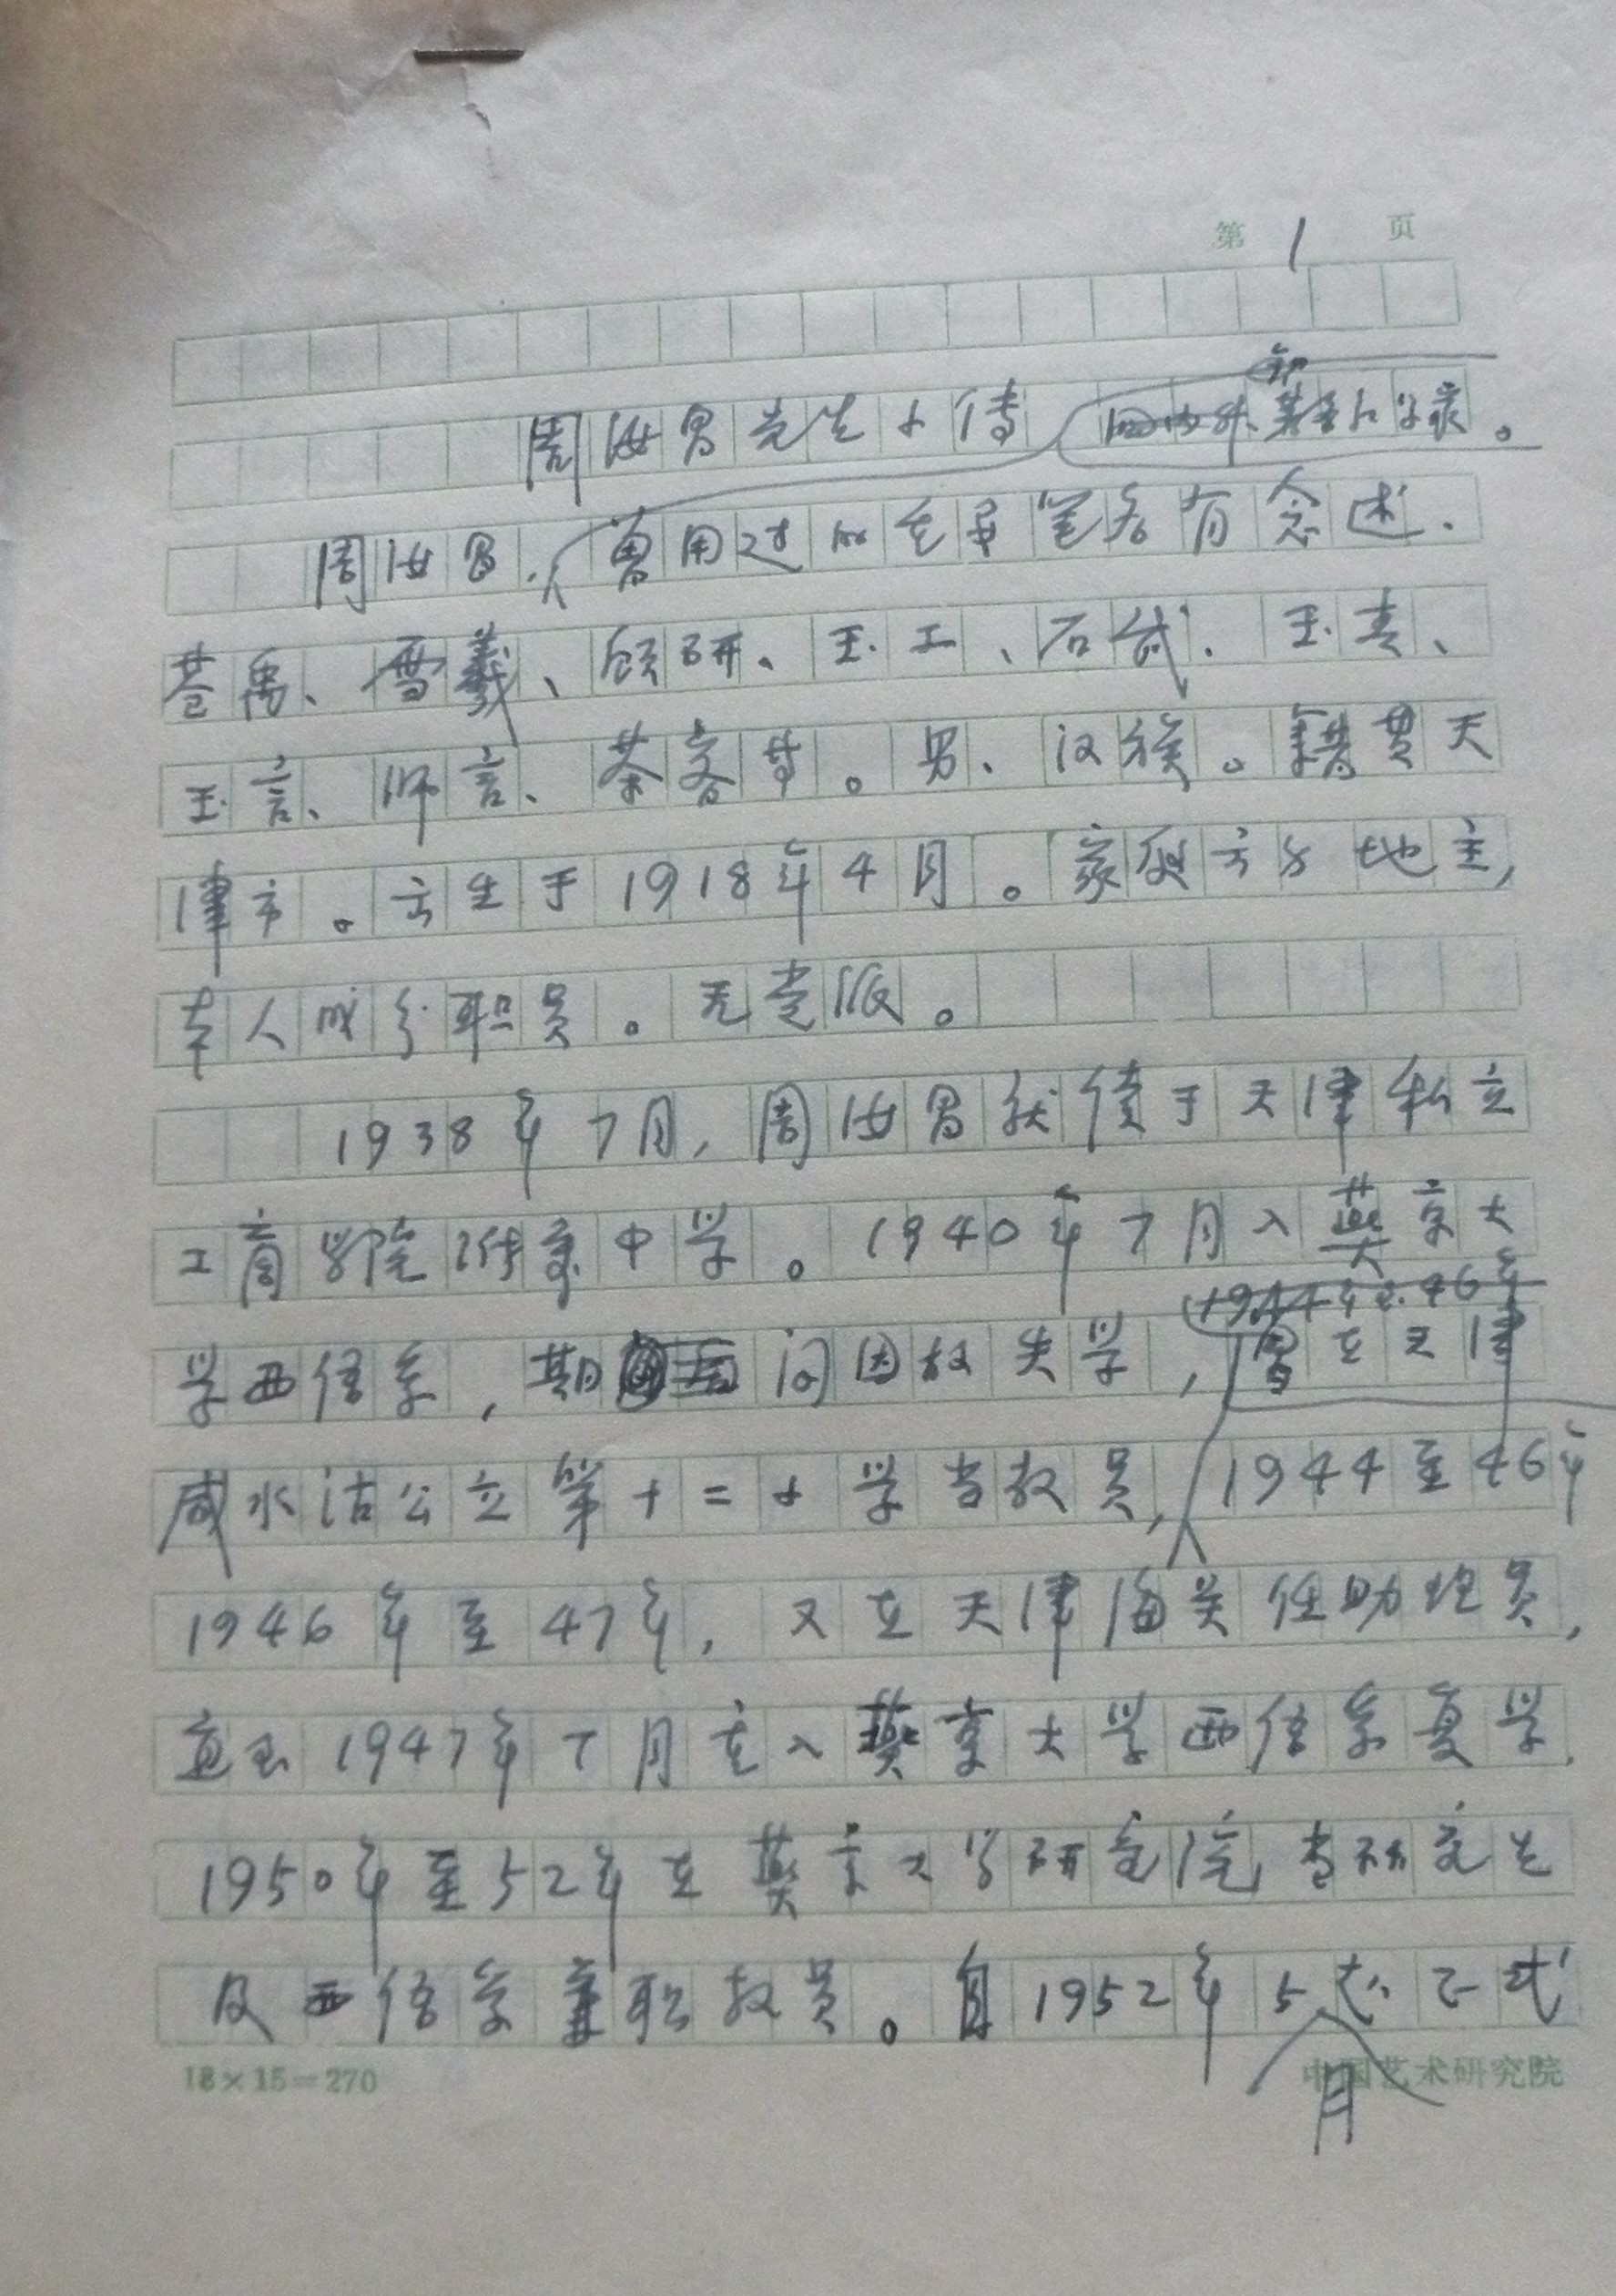 第 1 页
周汝昌先生小传 国内外著名红学家。
周汝昌,曾用过的主要笔名有念述、
苍禹、雪羲、顾研、玉工、石武、玉青、
玉言、师言、茶客等。男、汉族。籍贯天
津市。出生于1918年4月。家庭出身地主,
本人成分职员。无党派。
1938年7月,周汝昌就读于天津私立
工商学院附属中学。1940年7月入燕京大
学西语系,期间因故失学,曾在天津
1944年至46年
咸水沽公立第十二小学当教员,1944至46年
1946年至47年,又在天津海关任助理员,
直到1947年7月主入燕京大学西语系复学,
1950年至52年在燕京大学研究院当研究生
及西语系兼职教员。自1952年5月起正式
18×15=270
中国艺术研究院